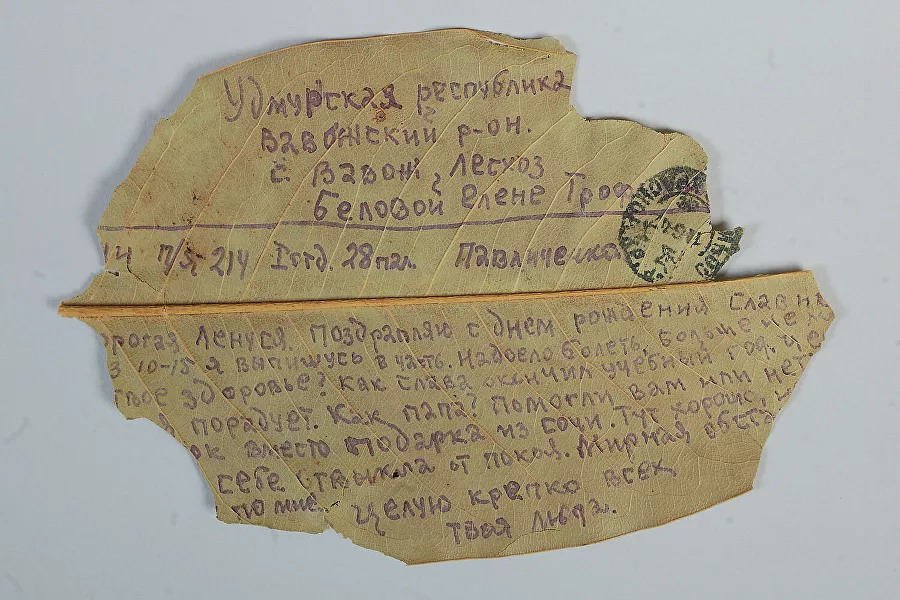 Удмурская республика
Вавожский р-он.
с Вавож, лесхоз
Беловой Елене Троф
п/я 214 I отд. 28 пал. Павличенко
орогая Ленуся. Поздравляю с днем рождения Славика
з 10-15 я выпишусь в часть. Надоело болеть. Больше не
твое здоровье? Как Слава окончил учебный год.
я порадует. Как папа? Помогли вам или нет
ок вместо подарка из Сочи. Тут хорошо,
себе отвыкла от покоя. Мирная обста
по мне. Целую крепко всех,
твоя Люда.